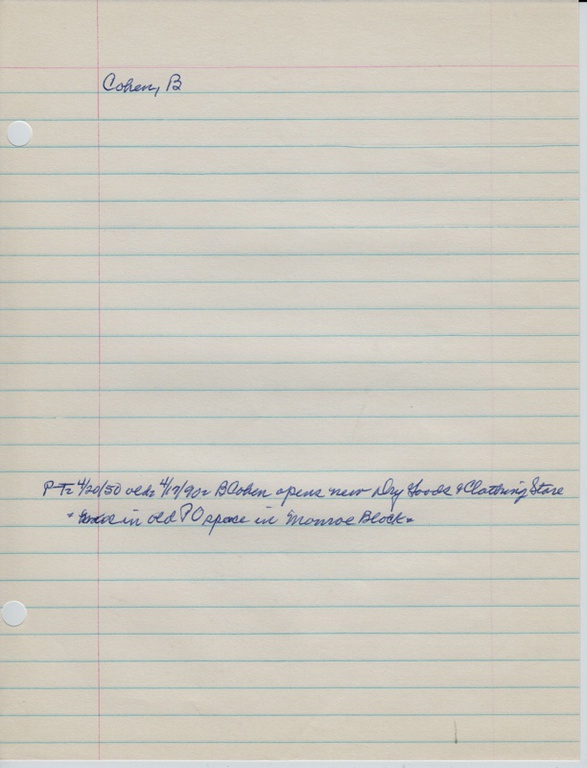 Cohen, B
P-T= 4/20/50 olds 4/17/90= B Cohen opens new Dry Goods & Clothing Store
in old P O space in Monroe Block=